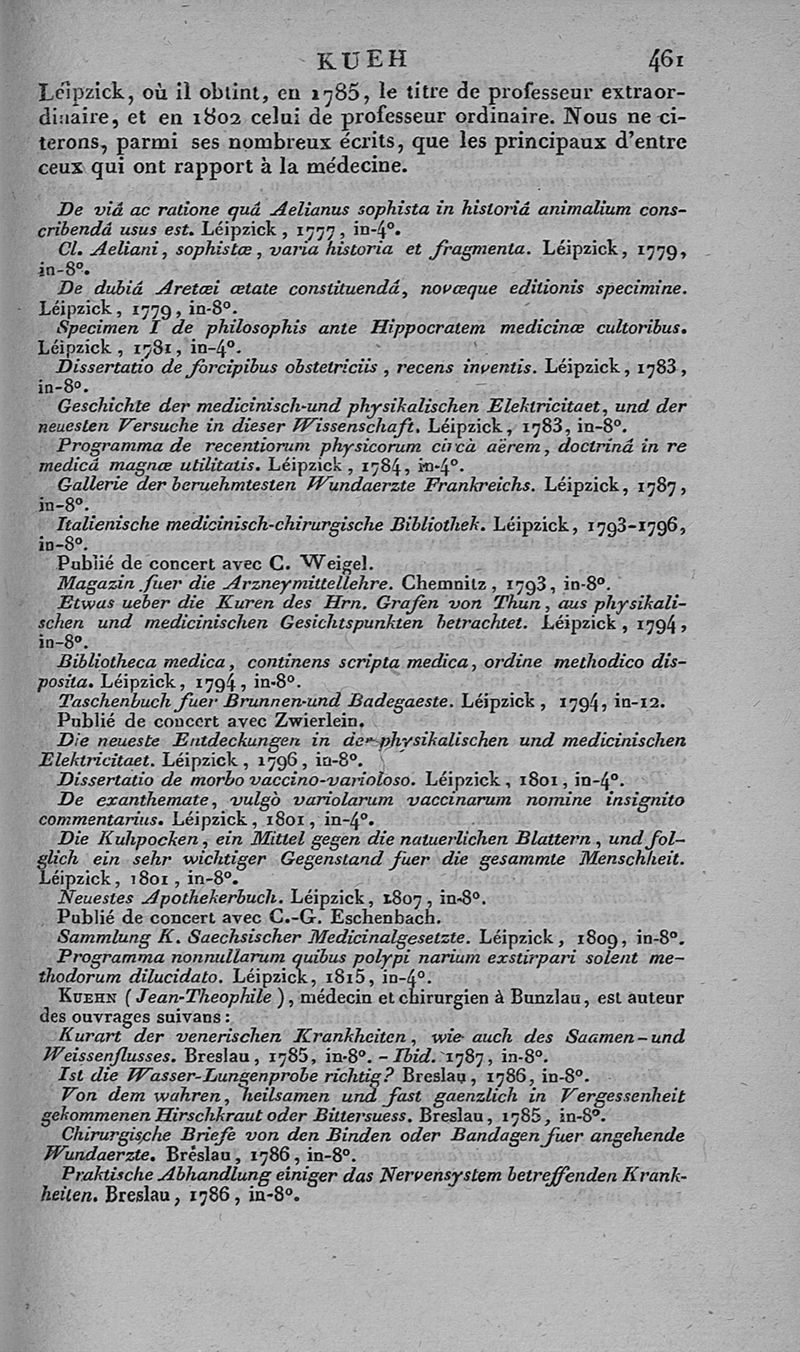 KUEH 461
Léipzick, où il obtint, en 1785, le titre de professeur extraor-
dinaire, et en 1802 celui de professeur ordinaire. Nous ne ci-
terons, parmi ses nombreux écrits, que les principaux d'entre
ceux qui ont rapport à la médecine.
De viâ ac ratione quâ Aelianus sophista in historiâ animalium cons-
cribendâ usus est. Léipzick, 1777, in-4°.
Cl. Aeliani, sophistæ, varia historia et fragmenta. Léipzick, 1779,
in-8°.
De dubiâ Aretæi ætate constituendâ, novæque editionis specimine.
Léipzick, 1779, in-8°.
Specimen I de philosophis ante Hippocratem medicinæ cultoribus.
Léipzick, 1781, in-4°.
Dissertatio de forcipibus obstetriciis, recens inventis. Léipzick, 1783,
in-8°.
Geschichte der medicinisch-und physikalischen Elektricitaet, und der
neuesten Versuche in dieser Wissenschaft. Léipzick, 1783, in-8°.
Programma de recentiorum physicorum circà aërem, doctrinâ in re
medicâ magnæ utilitatis. Léipzick, 1784, in-4°.
Gallerie der beruehmtesten Wundaerzte Frankreichs. Léipzick, 1787,
in-8°.
Italienische medicinisch-chirurgische Bibliothek. Léipzick, 1793-1796,
in-8°.
Publié de concert avec C. Weigel.
Magazin fuer die Arzneymittellehre. Chemnitz, 1793, in-8°.
Etwas ueber die Kuren des Hrn. Grafen von Thun, aus physikali-
schen und medicinischen Gesichtspunkten betrachtet. Léipzick, 1794,
in-8°.
Bibliotheca medica, continens scripta medica, ordine methodico dis-
posita. Léipzick, 1794, in-8°.
Taschenbuch fuer Brunnen-und Badegaeste. Léipzick, 1794, in-12.
Publié de concert avec Zwierlein.
Die neueste Entdeckungen in der physikalischen und medicinischen
Elektricitaet. Léipzick, 1796, in-8°.
Dissertatio de morbo vaccino-varioloso. Léipzick, 1801, in-4°.
De exanthemate, vulgò variolarum vaccinarum nomine insignito
commentarius. Léipzick, 1801, in-4°.
Die Kuhpocken, ein Mittel gegen die natuerlichen Blattern, und fol-
glich ein sehr wichtiger Gegenstand fuer die gesammte Menschheit.
Léipzick, 1801, in-8°.
Neuestes Apothekerbuch. Léipzick, 1807, in-8°.
Publié de concert avec C.-G. Eschenbach.
Sammlung K. Saechsischer Medicinalgesetzte. Léipzick, 1809, in-8°.
Programma nonnullarum quibus polypi narium exstirpari solent me-
thodorum dilucidato. Léipzick, 1815, in-4°.
KUEHN (Jean-Theophile), médecin et chirurgien à Bunzlau, est auteur
des ouvrages suivans :
Kurart der venerischen Krankheiten, wie auch des Saamen-und
Weissenflusses. Breslau, 1785, in-8°. - Ibid. 1787, in-8°.
Ist die Wasser-Lungenprobe richtig? Breslau, 1786, in-8°.
Von dem wahren, heilsamen und fast gaenzlich in Vergessenheit
gekommenen Hirschkraut oder Bittersuess. Breslau, 1785, in-8°.
Chirurgische Briefe von den Binden oder Bandagen fuer angehende
Wundaerzte. Breslau, 1786, in-8°.
Praktische Abhandlung einiger das Nervensystem betreffenden Krank-
heiten. Breslau, 1786, in-8°.